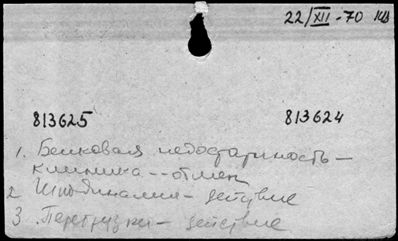 22/XII-70 КВ
813625 813624
1. Белковая недостаточность –
клиника -- отмен
2 Гиподинамия – действие
3. Перегрузки – действие